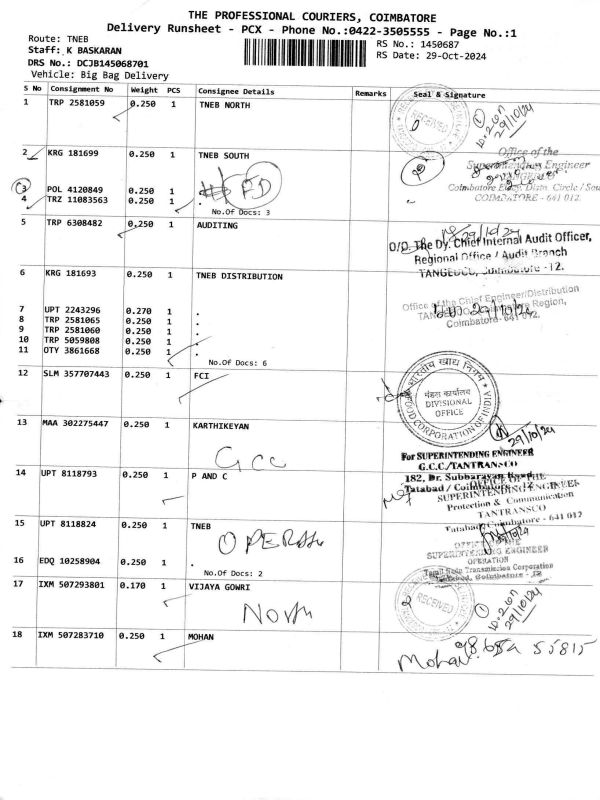 THE PROFESSIONAL COURIERS, COIMBATORE
Delivery Runsheet - PCX - Phone No.:0422-3505555 - Page No.:1
Route: TNEB
RS No.: 1450687
Staff: K BASKARAN
RS Date: 29-Oct-2024
DRS No.: DCJB145068701
Vehicle: Big Bag Delivery
S No Consignment No Weight PCS Consignee Details Remarks Seal & Signature
1 TRP 2581059 0.250 1 TNEB NORTH
RECEIVED
29/10/24
2 KRG 181699 0.250 1 TNEB SOUTH
Office of the
Superintending Engineer
TANGEDCO
Coimbatore Elecy. Distn. Circle / Sou
COIMBATORE - 641 012.
3 POL 4120849 0.250 1
FD
4 TRZ 11083563 0.250 1 .
No.Of Docs: 3
5 TRP 6308482 0.250 1 AUDITING
29/10/24
O/O. The Dy. Chief Internal Audit Officer,
Regional Office / Audit Branch
TANGEDCO, Coimbatore -12.
6 KRG 181693 0.250 1 TNEB DISTRIBUTION
Office of the Chief Engineer/Distribution
TANGEDCO, Coimbatore Region,
Coimbatore- 641 012.
29/10/24
7 UPT 2243296 0.270 1 .
8 TRP 2581065 0.250 1 .
9 TRP 2581060 0.250 1 .
10 TRP 5059808 0.250 1 .
11 OTY 3861668 0.250 1 .
No.Of Docs: 6
12 SLM 357707443 0.250 1 FCI
भारतीय खाद्य निगम
मंडल कार्यालय
DIVISIONAL
OFFICE
FOOD CORPORATION OF INDIA
13 MAA 302275447 0.250 1 KARTHIKEYAN
GCC
29/10/24
For SUPERINTENDING ENGINEER
G.C.C./TANTRANSCO
182, Dr. Subbarayan Road,
Tatabad / Coimbatore - 12
14 UPT 8118793 0.250 1 P AND C
OFFICE OF THE
SUPERINTENDING ENGINEER
Protection & Communication
TANTRANSCO
Tatabad/Coimbatore - 641 012
15 UPT 8118824 0.250 1 TNEB
OFFICE OF THE
SUPERINTENDING ENGINEER
OPERATION
Tamil Nadu Transmission Corporation
Tatabad, Coimbatore - 12
16 EDQ 10258904 0.250 1 .
No.Of Docs: 2
17 IXM 507293801 0.170 1 VIJAYA GOWRI
North
RECEIVED
29/10/24
18 IXM 507283710 0.250 1 MOHAN
Mohan